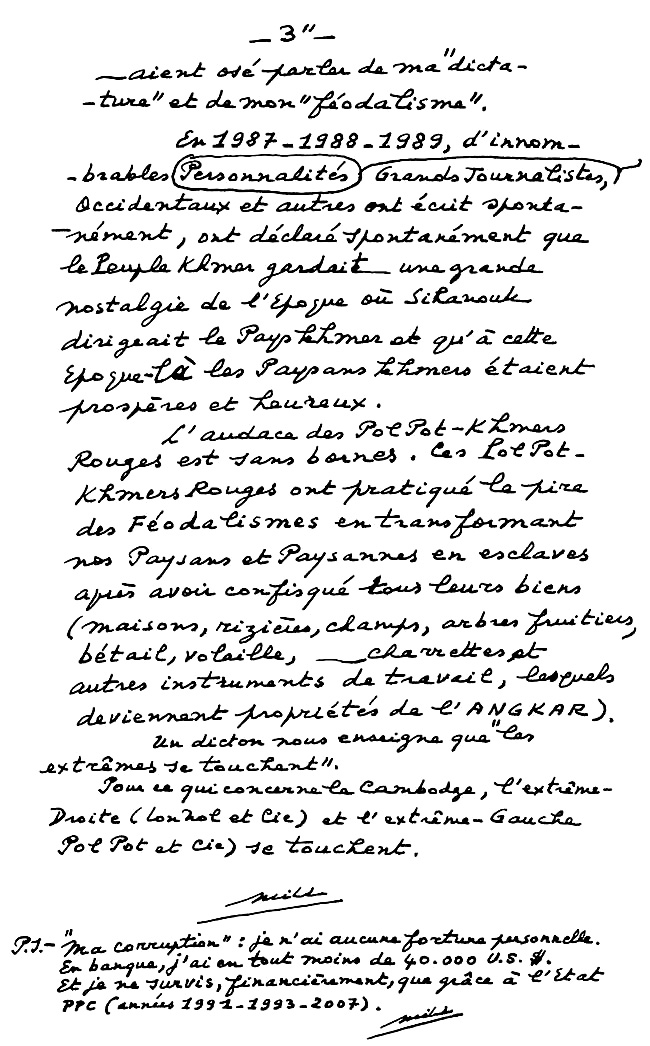 — 3" —
—aient osé parler de ma "dicta-
-ture" et de mon "féodalisme".
En 1987-1988-1989, d'innom-
-brables Personnalités Grands Journalistes,
Occidentaux et autres ont écrit sponta-
-nément, ont déclaré spontanément que
le Peuple Khmer gardait une grande
nostalgie de l'Epoque où Sihanouk
dirigeait le Pays Khmer et qu'à cette
Epoque-là les Paysans Khmers étaient
prospères et heureux.
L'audace des Pol Pot-Khmers
Rouges est sans bornes. Ces Pol Pot-
Khmers Rouges ont pratiqué le pire
des Féodalismes en transformant
nos Paysans et Paysannes en esclaves
après avoir confisqué tous leurs biens
(maisons, rizières, champs, arbres fruitiers,
bétail, volaille, charrettes et
autres instruments de travail, lesquels
deviennent propriétés de l'ANGKAR).
Un dicton nous enseigne que "les
extrêmes se touchent".
Pour ce qui concerne le Cambodge, l'extrême-
Droite (Lon Nol et Cie) et l'extrême-Gauche
Pol Pot et Cie) se touchent.
P.S.- "Ma corruption" : je n'ai aucune fortune personnelle.
En banque, j'ai en tout moins de 40.000 U.S. $.
Et je ne survis, financièrement, que grâce à l'Etat
PPC (années 1991-1993-2007).